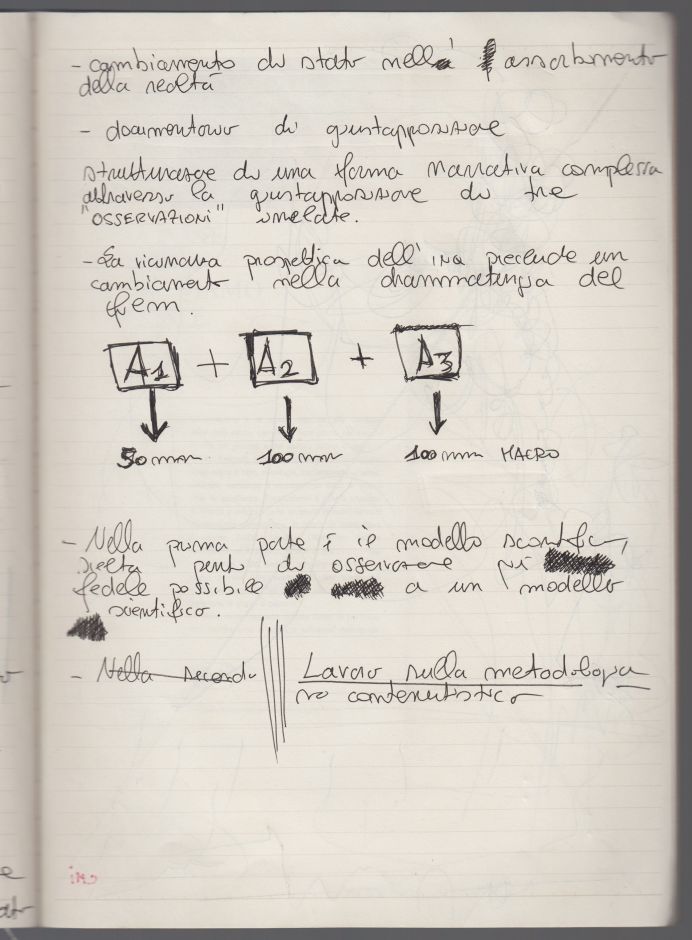 - cambiamento di stato nella assorbimento
della realtà
- documentario di giustapposizione
strutturazione di una forma narrativa complessa
attraverso la giustapposizione di tre
"OSSERVAZIONI" umelate.
- La vicinanza prospettica dell' preclude un
cambiamento nella drammaturgia del
film.
A1 + A2 + A3
50 mm 100 mm 100 mm MACRO
- Nella prima parte è il modello scientifico,
scelta punto di osservazione più
fedele possibile a un modello
scientifico.
- Nella seconda Lavoro sulla metodologia
no contenutistico